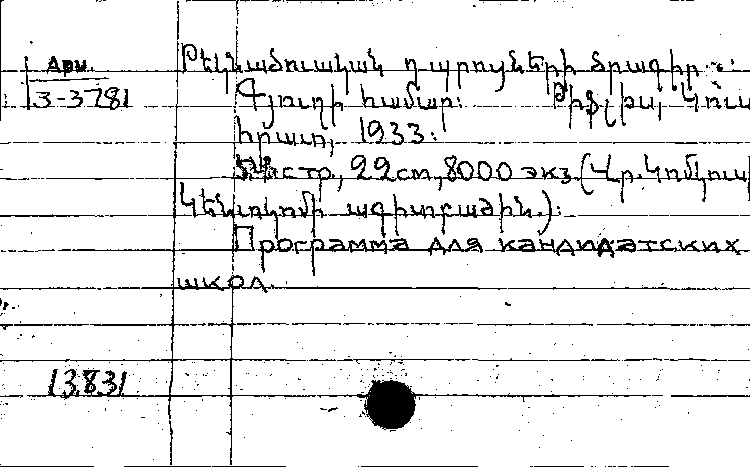 Арм.
3-3781
Թեկնածուական դպրոցների ծրագիր։
Գյուղի համար։ Թիֆլիս, Կուս
հրատ, 1933։
стр., 22 cm, 8000 экз. (Վր. Կոմկուս
Կենտկոմի ագիտբաժին.)։
Программа для кандидатских
школ.
13.831